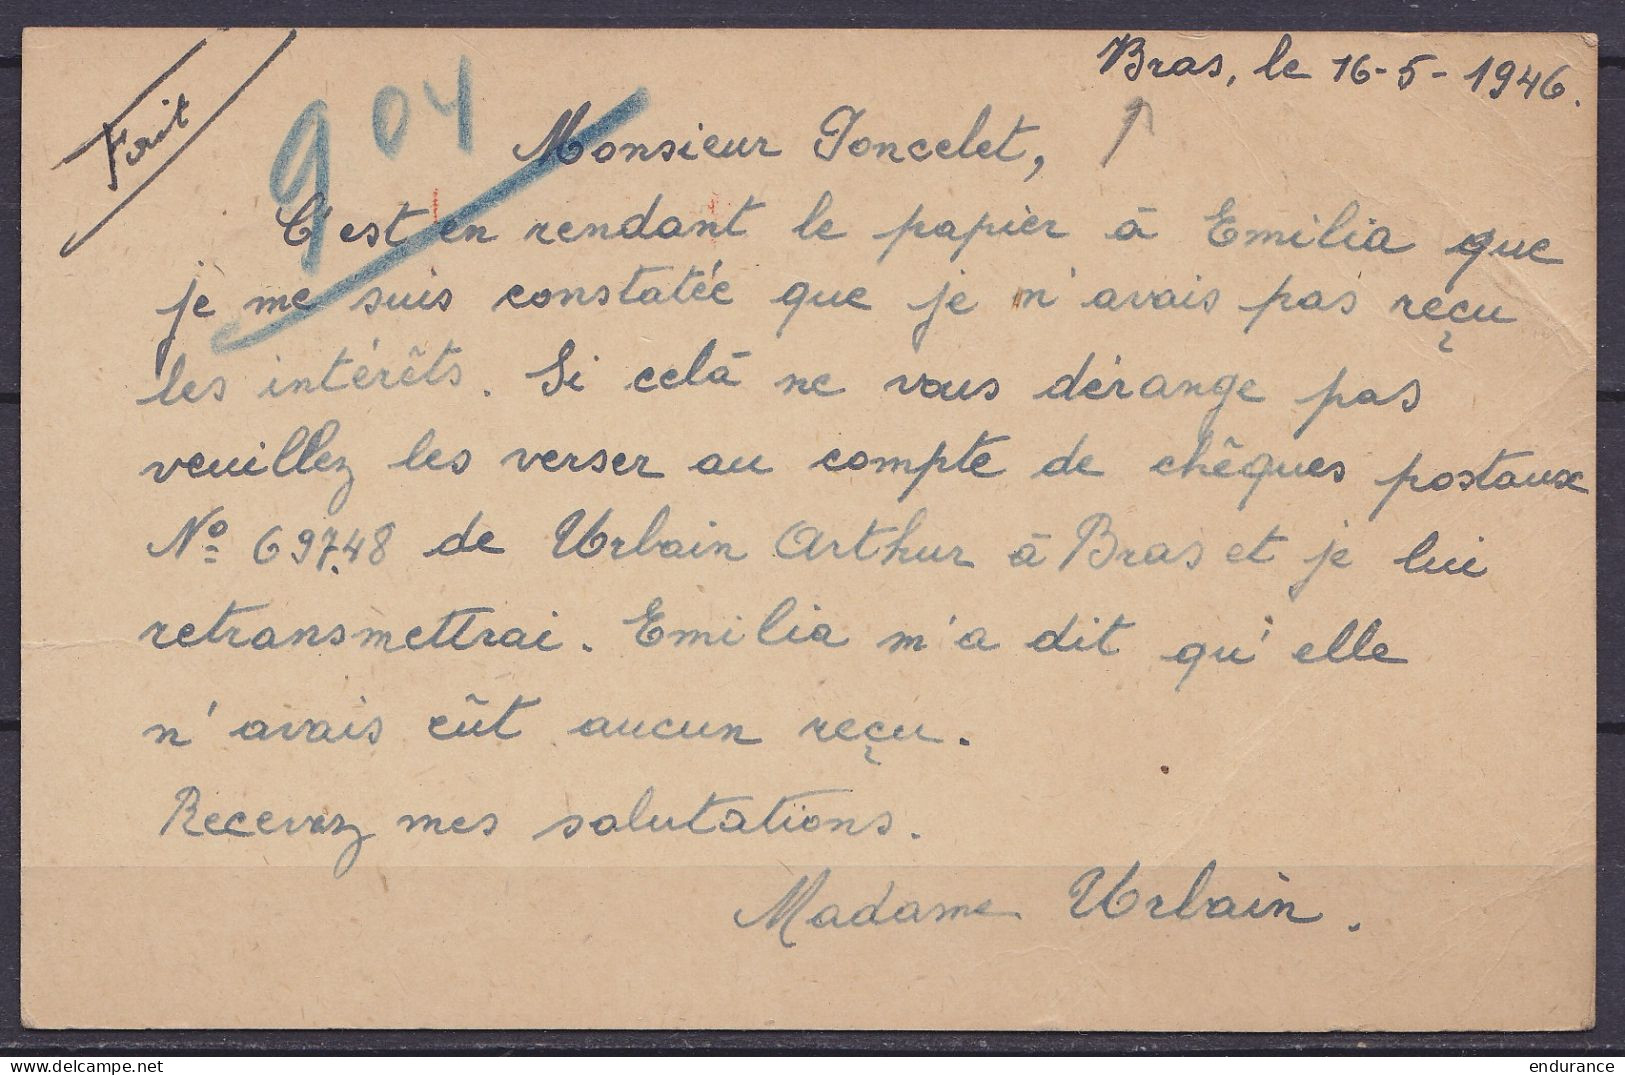 Bras, le 16-5-1946.
Fait
904
Monsieur Poncelet,
C'est en rendant le papier à Emilia que
je me suis constatée que je n'avais pas reçu
les intérêts. Si celà ne vous dérange pas
veuillez les verser au compte de chêques postaux
Nº 697.48 de Urbain Arthur à Bras et je lui
retransmettrai. Emilia m'a dit qu'elle
n'avais eût aucun reçu.
Recevez mes salutations.
Madame Urbain.
endurance